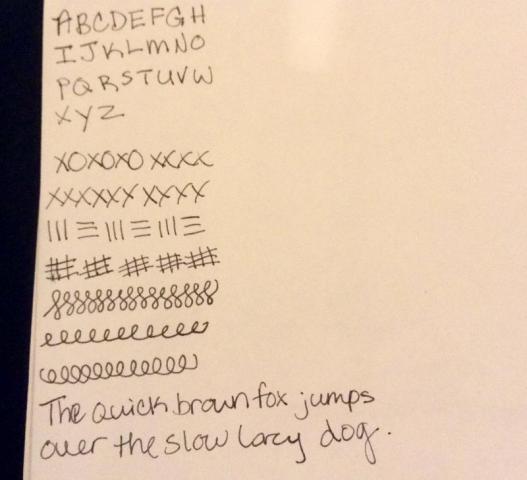 ABCDEFGH
IJKLMNO
PQRSTUVW
XYZ
XOXOXO XXXX
XXXXXX XXXX
The quick brown fox jumps
over the slow lazy dog.